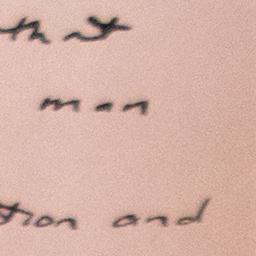 that
man
tion and